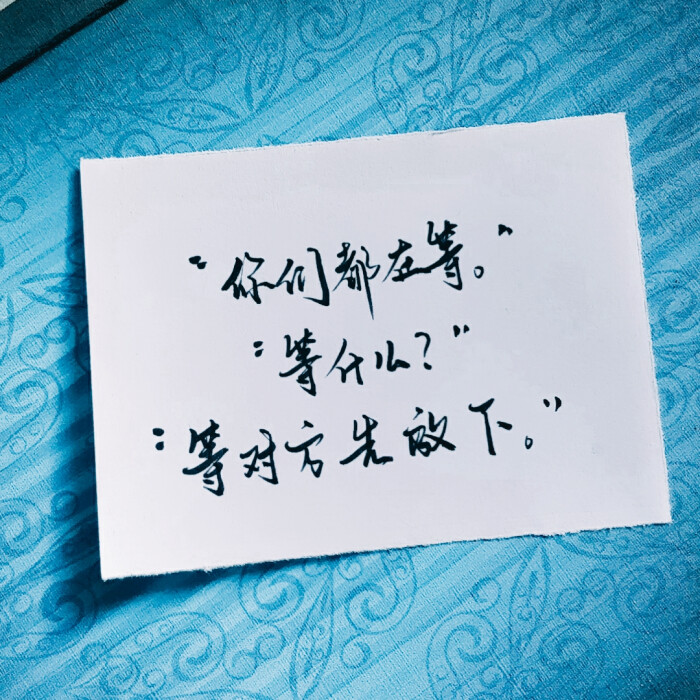 “你们都在等。”
“等什么？”
“等对方先放下。”